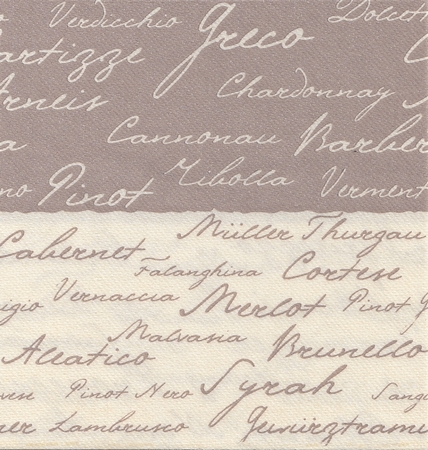 Verdicchio Dolcett
Greco
artizze
Chardonnay
Arneis
Cannonau Barber
Ribolla
no Pinot Verment
Müller Thurgau
Cabernet
Falanghina Cortese
Vernaccia
igio Merlot Pinot G
Malvasia
Aleatico Brunello
Syrah
nese Pinot Nero Sang
ner Lambrusco Gewürztrami